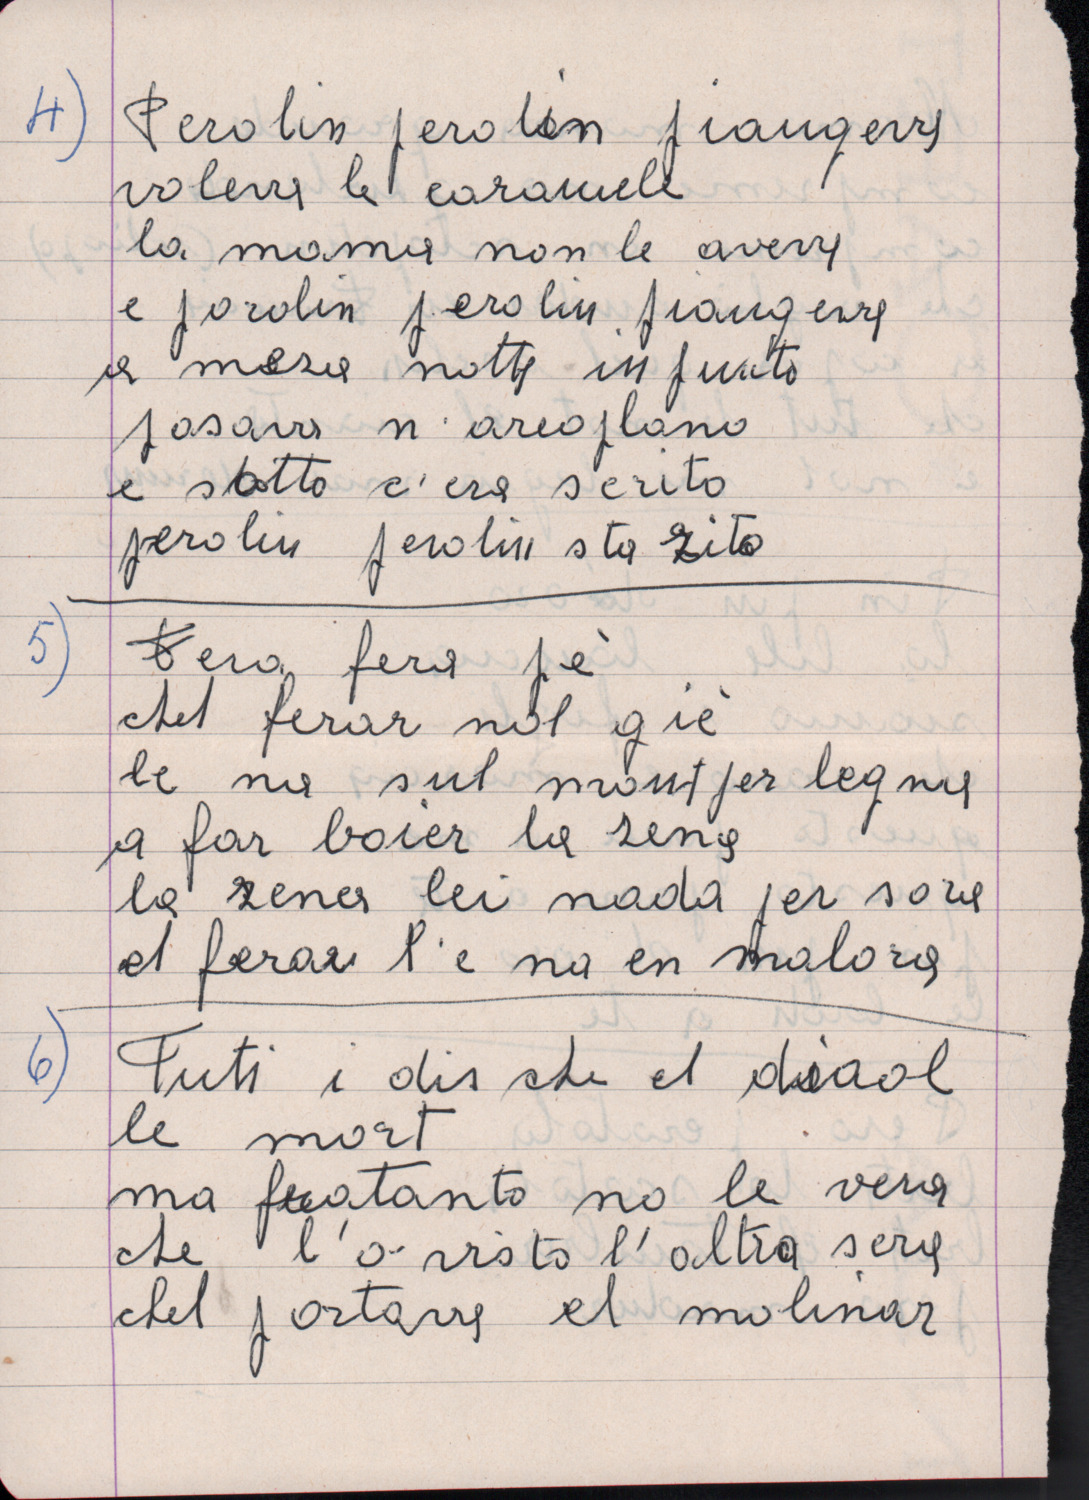 4) Perolin perolin piangeva
voleva le caramele
la mama non le aveva
e porolin perolin piangeva
a meza notte in punto
pasava n'areoplano
e sotto c'era scrito
perolin perolin sta zito
5) Fera fera pè
chel ferar nol giè
le na sul mont per legna
a far boier la zena
la zena lei nada per sora
el ferar l'e na en malora
6) Tuti i dis che el diaol
le mort
ma fratanto no le vera
che l'o visto l'altra sera
chel portava el molinar